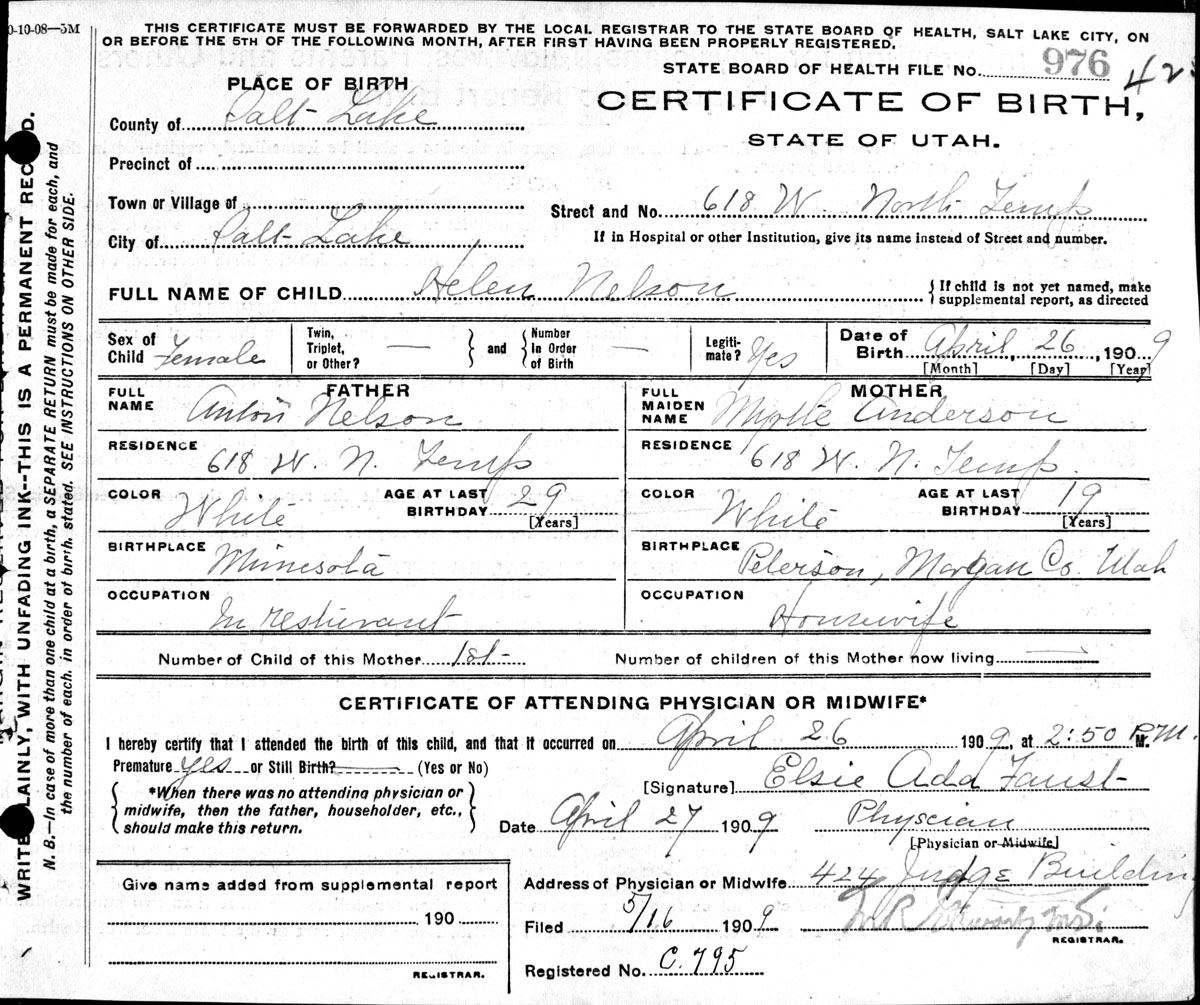 0-10-08—5M
THIS CERTIFICATE MUST BE FORWARDED BY THE LOCAL REGISTRAR TO THE STATE BOARD OF HEALTH, SALT LAKE CITY, ON
OR BEFORE THE 5TH OF THE FOLLOWING MONTH, AFTER FIRST HAVING BEEN PROPERLY REGISTERED.
STATE BOARD OF HEALTH FILE No. 976
CERTIFICATE OF BIRTH,
STATE OF UTAH.
PLACE OF BIRTH
County of Salt Lake
Precinct of
Town or Village of
City of Salt Lake
Street and No. 618 W. North Temp
If in Hospital or other Institution, give its name instead of Street and number.
FULL NAME OF CHILD Helen Nelson { If child is not yet named, make
supplemental report, as directed
Sex of Child Female
Twin, Triplet, or Other? — } and { Number In Order of Birth —
Legiti-mate? Yes
Date of Birth April 26, 1909
[Month] [Day] [Year]
FATHER
FULL NAME Anton Nelson
RESIDENCE 618 W. N. Temp
COLOR White AGE AT LAST BIRTHDAY 29 [Years]
BIRTHPLACE Minnesota
OCCUPATION In resturant
MOTHER
FULL MAIDEN NAME Myrtle Anderson
RESIDENCE 618 W. N. Temp.
COLOR White AGE AT LAST BIRTHDAY 19 [Years]
BIRTHPLACE Peterson, Morgan Co. Utah
OCCUPATION Housewife
Number of Child of this Mother 1st- Number of children of this Mother now living —
CERTIFICATE OF ATTENDING PHYSICIAN OR MIDWIFE*
I hereby certify that I attended the birth of this child, and that it occurred on April 26 1909, at 2:50 P.M.
Premature yes or Still Birth? — (Yes or No)
{ *When there was no attending physician or
midwife, then the father, householder, etc.,
should make this return. }
[Signature] Elsie Ada Faust
Date April 27 1909 Physcian
[Physician or Midwife]
Give name added from supplemental report
190
REGISTRAR.
Address of Physician or Midwife 424 Judge Building
Filed 5/16 1909
REGISTRAR.
Registered No. C. 795
WRITE PLAINLY, WITH UNFADING INK--THIS IS A PERMANENT RECORD.
N. B.—In case of more than one child at a birth, a SEPARATE RETURN must be made for each, and
the number of each, in order of birth, stated. SEE INSTRUCTIONS ON OTHER SIDE.